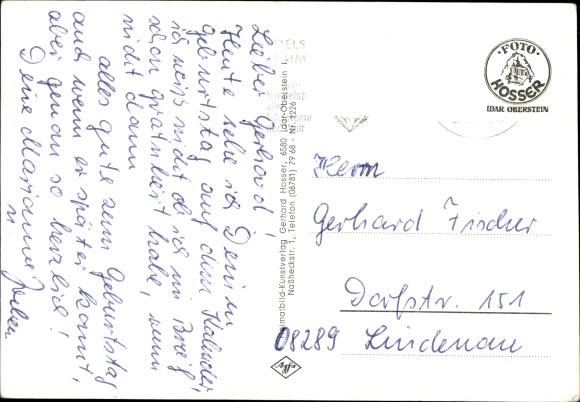 Lieber Gerhard!
Heute sehe ich Deinen
Geburtstag auf dem Kalender
ich weiß nicht ob ich im Brief
schon gratuliert habe, wenn
nicht dann
alles gute zum Geburtstag
auch wenn er später kommt,
aber genau so herzlich!
Deine Marianne
u.
Heimatbild-Kunstverlag Gerhard Hosser, 6580 Idar-Oberstein 1
Naßheckstr. 1, Telefon (06781) 79 68 - Nr. 1226
Agfa
• FOTO •
HOSSER
IDAR OBERSTEIN
Herrn
Gerhard Fischer
Dorfstr. 151
08289 Lindenau